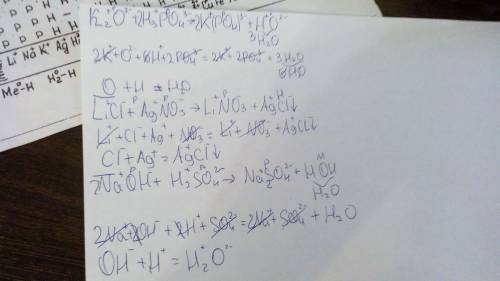 P P P P H
P P P P
P P H
Li⁺ Na⁺ K⁺ Ag⁺ H
Me⁰-H H₂⁰-H
K₂⁺O²⁻ + H₃⁺PO₄³⁻ → 2K₃⁺PO₄³⁻ + H₂⁺O²⁻
3H₂O
2K⁺ + O²⁻ + 6H⁺ + 2PO₄³⁻ = 2K⁺ + 2PO₄³⁻ = 3H₂O
O + H =
LiCl + Ag⁺NO₃⁻ → Li⁺NO₃⁻ + AgCl↓
Li⁺ + Cl⁻ + Ag⁺ + NO₃⁻ = Li⁺ + NO₃⁻ + AgCl↓
Cl⁻ + Ag⁺ = AgCl↓
2Na⁺OH⁻ + H₂⁺SO₄²⁻ → Na₂⁺SO₄²⁻ + HOH
H₂O
2Na⁺ + 2OH⁻ + 2H⁺ + SO₄²⁻ = 2Na⁺ + SO₄²⁻ + H₂O
OH⁻ + H⁺ = H₂⁺O²⁻